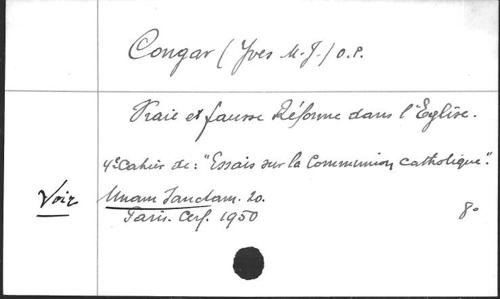 Congar (Yves M.-J.) O.P.
Vraie et fausse Réforme dans l'Eglise.
4e Cahier de: "Essais sur la Communion catholique".
Voir Unam Sanctam. 20.
Paris. Cerf. 1950 8°